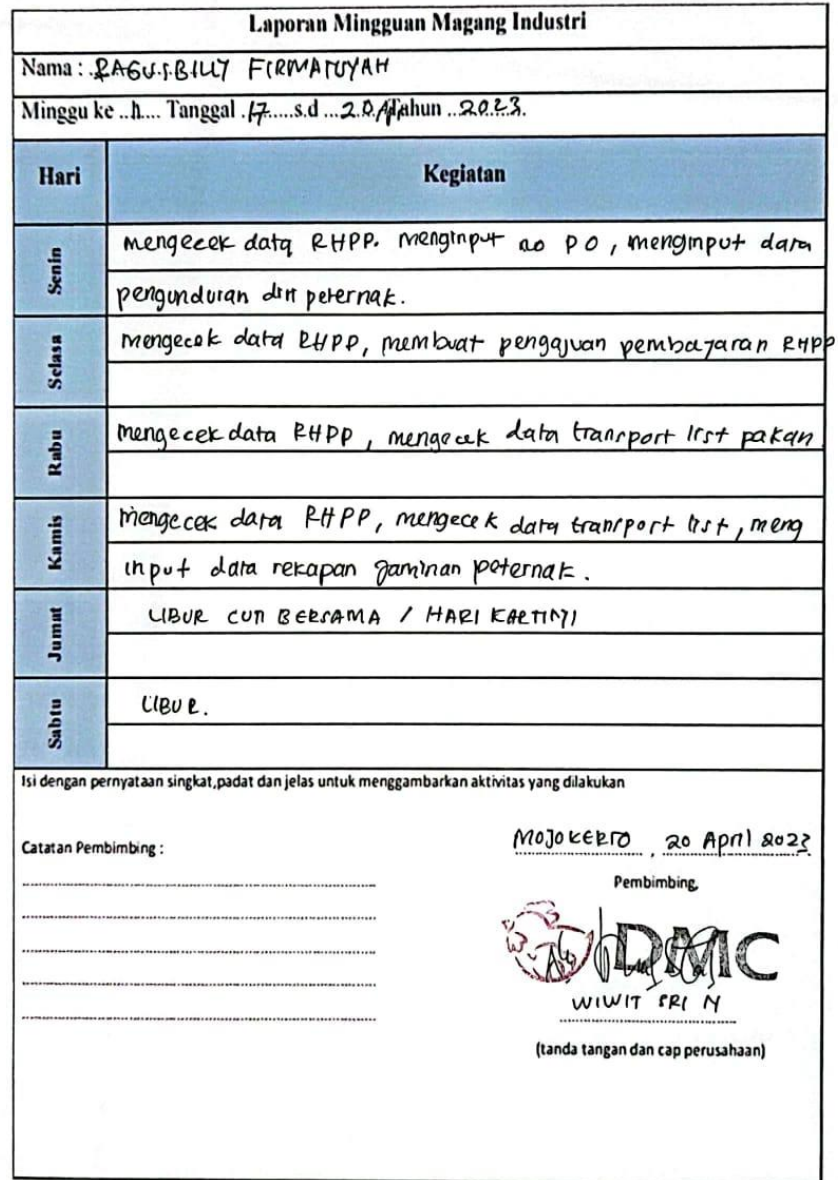 Laporan Mingguan Magang Industri
Nama : BAGUS BILLY FIRMANSYAH
Minggu ke ..... Tanggal .17.....s.d ...20 Apr Tahun ..2023.
Hari Kegiatan
Senin
mengecek data RHPP. menginput no PO, menginput data
pengunduran diri peternak.
Selasa
mengecek data RHPP, membuat pengajuan pembayaran RHPP
Rabu
mengecek data RHPP, mengecek data transport list pakan
Kamis
mengecek data RHPP, mengecek data transport list, meng
input data rekapan jaminan peternak.
Jumat
LIBUR CUTI BERSAMA / HARI KARTINI
Sabtu
LIBUR.
Isi dengan pernyataan singkat,padat dan jelas untuk menggambarkan aktivitas yang dilakukan
Catatan Pembimbing :
MOJOKERTO, 20 April 2023
Pembimbing,
DMC
WIWIT SRI N
(tanda tangan dan cap perusahaan)